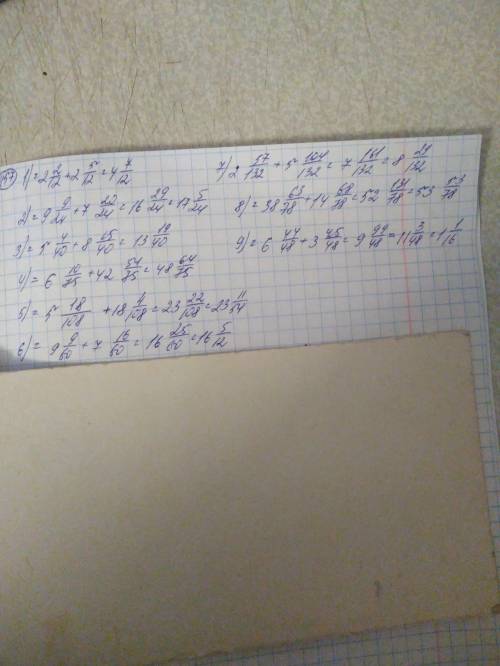 1) = 2 2/12 + 2 5/12 = 4 7/12
2) = 9 9/24 + 7 22/24 = 16 29/24 = 17 5/24
3) = 5 4/40 + 8 65/40 = 13 19/40
4) = 6 10/85 + 42 54/85 = 48 64/85
5) = 5 18/108 + 18 4/108 = 23 22/108 = 23 11/54
6) = 9 9/60 + 7 16/60 = 16 25/60 = 16 5/12
7) 2 57/132 + 5 104/132 = 7 161/132 = 8 29/132
8) = 38 63/78 + 14 68/78 = 52 131/78 = 53 53/78
9) = 6 44/48 + 3 45/48 = 9 99/48 = 11 3/48 = 1 1/16